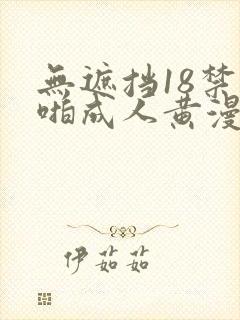 無遮挡18禁
啪成人黄漫
伊茹茹